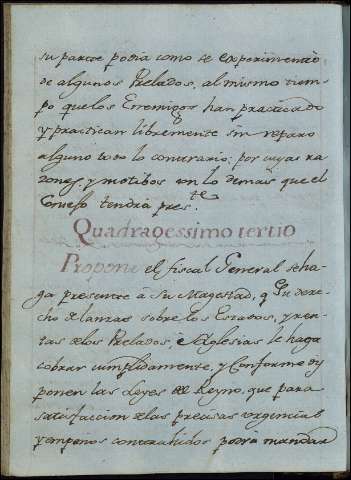 su parte podia como se experimentó
de algunos Prelados, al mismo tiem-
po que los Enemigos han practicado
y practican libremente sin reparo
alguno todo lo contrario; por cuyas ra
zones, y motibos con lo demas que el
Consejo tendrá pres.te
Quadragessimo tertio
Propone el fiscal General se ha-
ga presente á Su Magestad, q Su dere-
cho de lanzas sobre los Estados, y ren-
tas de los Prelados, è Yglesias le haga
cobrar cumplidamente, y Conforme dis
ponen las Leyes del Reyno, que para
satisfaccion de las precisas urgencias
y empeños contrahidos podrá mandar